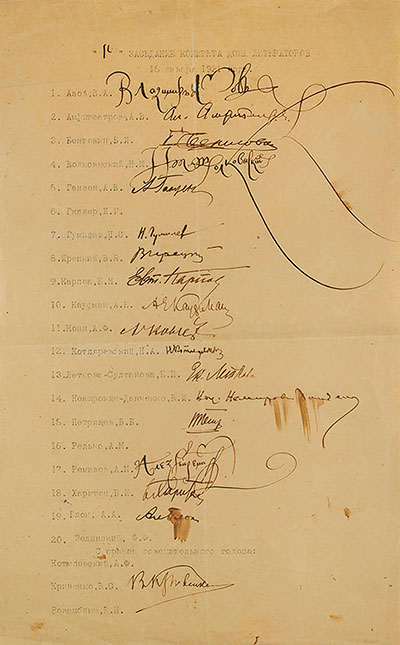 " 10 " ЗАСЕДАНИЕ КОМИТЕТА ДОМА ЛИТЕРАТОРОВ
18 января 192
1. Азов, В.А.
2. Амфитеатров, А.В. Ал. Амфитеатров
3. Бентович, Б.И.
4. Волковысский, Н.М.
5. Ганзен, А.В. А. Ганзен
6. Гизлер, К.Г.
7. Гумилев, Н.С. Н. Гумилев
8. Ирецкий, В.Я. В Ирецкий
9. Карпов, Е.П. Евт. Карпов
10. Кауфман, А.Е. А.Е. Кауфман
11. Кони, А.Ф.
12. Котляревский, Н.А. Н Котляревский
13. Леткова-Султанова, Е.П. Ек. Леткова
14. Немирович-Данченко, В.И. Немирович-Данченко
15. Петрищев, А.Б.
16. Редько, А.М.
17. Ремизов, А.М. Алексей Ремизов
18. Харитон, Б.И. Б. Харитон
19. Блок, А.А. Ал Блок
20. Зелинский, Ф.Ф.
С правом совещательного голоса:
Котылевский, А.Ф.
Кривенко, В.С. В Кривенко
Волковысс, Н.М.